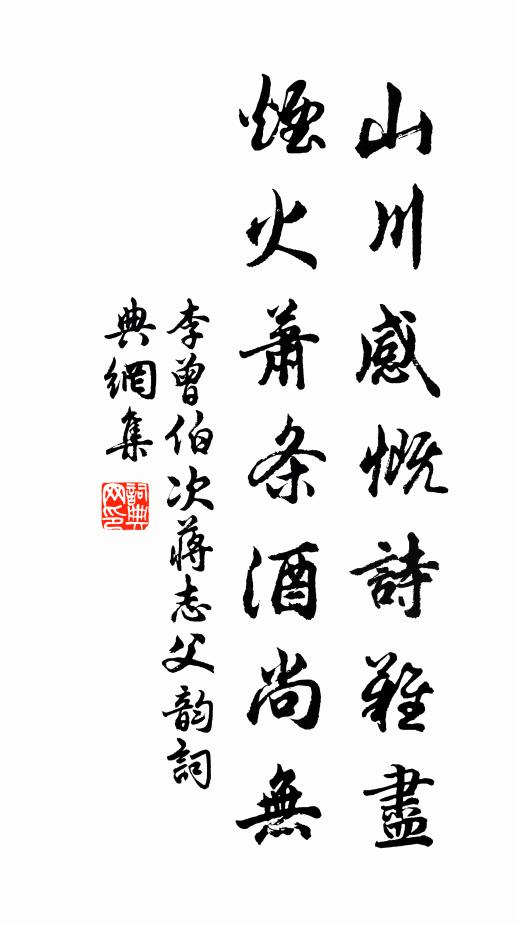 山川感慨詩難盡
煙火蕭条酒尚無
李曾伯次蔣志父韵詞
典網集
詞典
网印